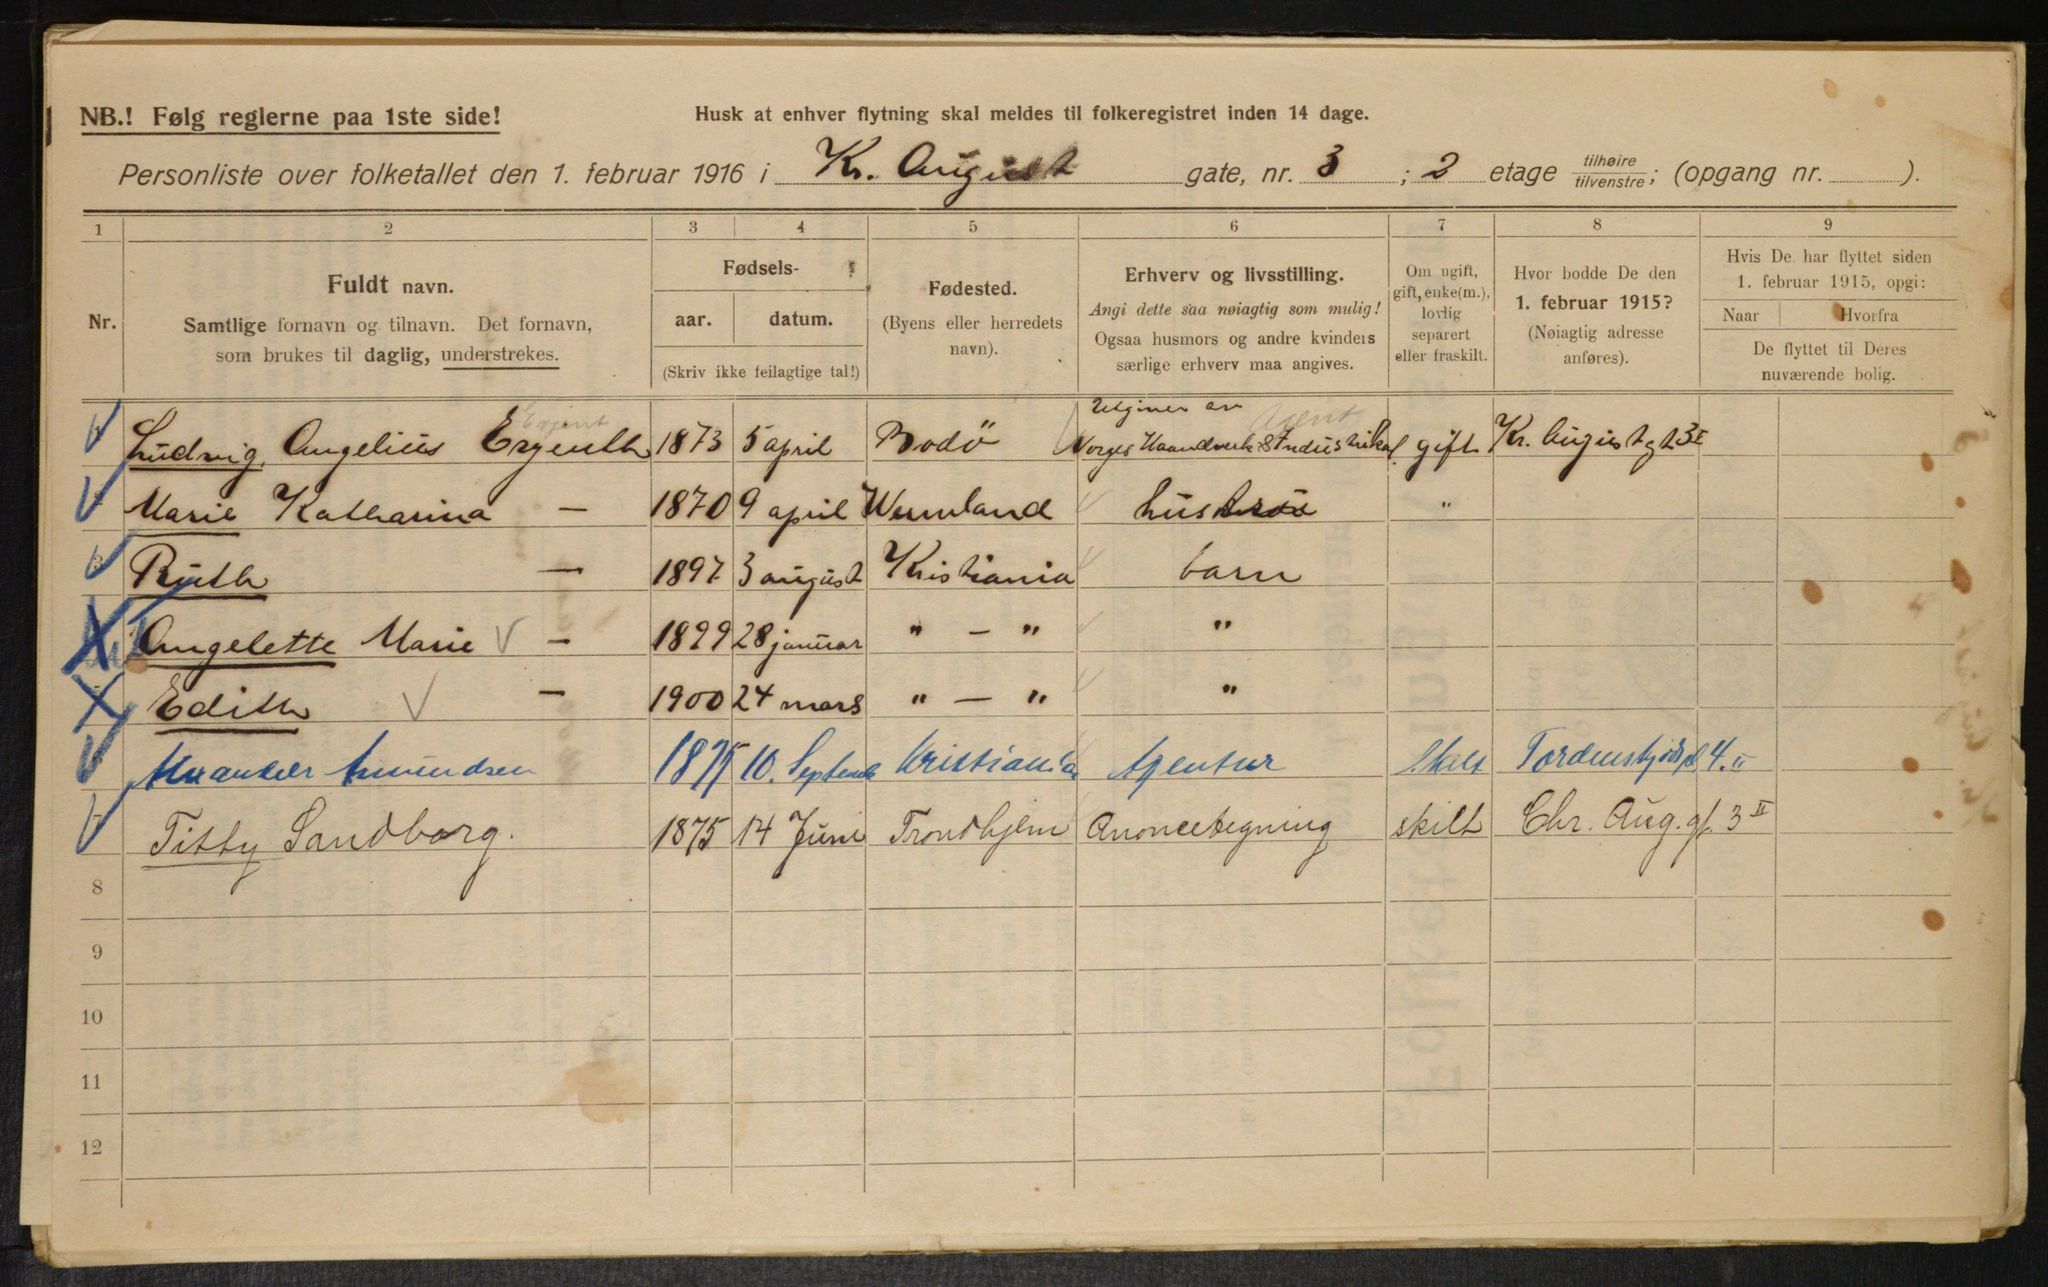 NB.! Følg reglerne paa 1ste side!
Husk at enhver flytning skal meldes til folkeregistret inden 14 dage.
Personliste over folketallet den 1. februar 1916 i Kr. August gate, nr. 3 ; 2 etage tilhøire / tilvenstre; (opgang nr. ).
1 2 3 4 5 6 7 8 9
Nr.
Fuldt navn.
Samtlige fornavn og tilnavn. Det fornavn,
som brukes til daglig, understrekes.
Fødsels-
aar. datum.
(Skriv ikke feilagtige tal!)
Fødested.
(Byens eller herredets
navn).
Erhverv og livsstilling.
Angi dette saa nøiagtig som mulig!
Ogsaa husmors og andre kvinders
særlige erhverv maa angives.
Om ugift,
gift, enke(m.),
lovlig
separert
eller fraskilt.
Hvor bodde De den
1. februar 1915?
(Nøiagtig adresse
anføres).
Hvis De har flyttet siden
1. februar 1915, opgi:
Naar Hvorfra
De flyttet til Deres
nuværende bolig.
Utgiver av Agent
Ludvig Angelius 1873 5 april Bodö Norges Haandverk & Industrikal. gift Kr. August gt 3 II
Marie Katharina — 1870 9 april Wermland hustru "
Ruth — 1897 3 august Kristiania barn
Angelette Marie — 1899 28 januar " — " "
Edith — 1900 24 mars " — " "
Amundsen 1875 10. Septemb Kristiania Agentur skilt Tordenskjolds pl 4. II
Titty Sandborg. 1875 14 Juni Trondhjem Anoncetegning skilt Chr. Aug. gt. 3 II
8
9
10
11
12